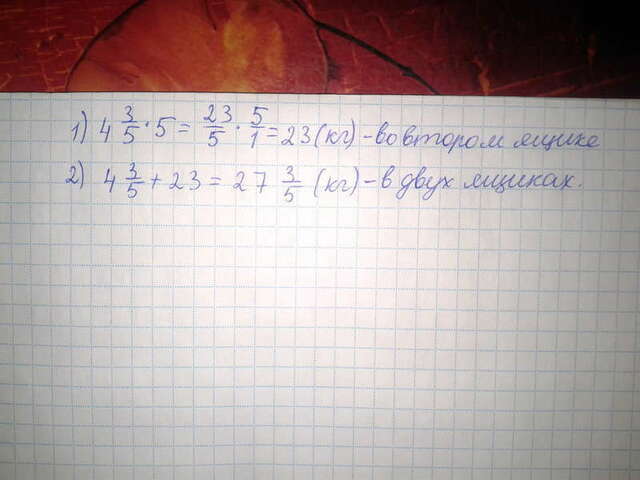 1) 4 3/5 · 5 = 23/5 · 5/1 = 23 (кг) - во втором ящике
2) 4 3/5 + 23 = 27 3/5 (кг) - в двух ящиках.